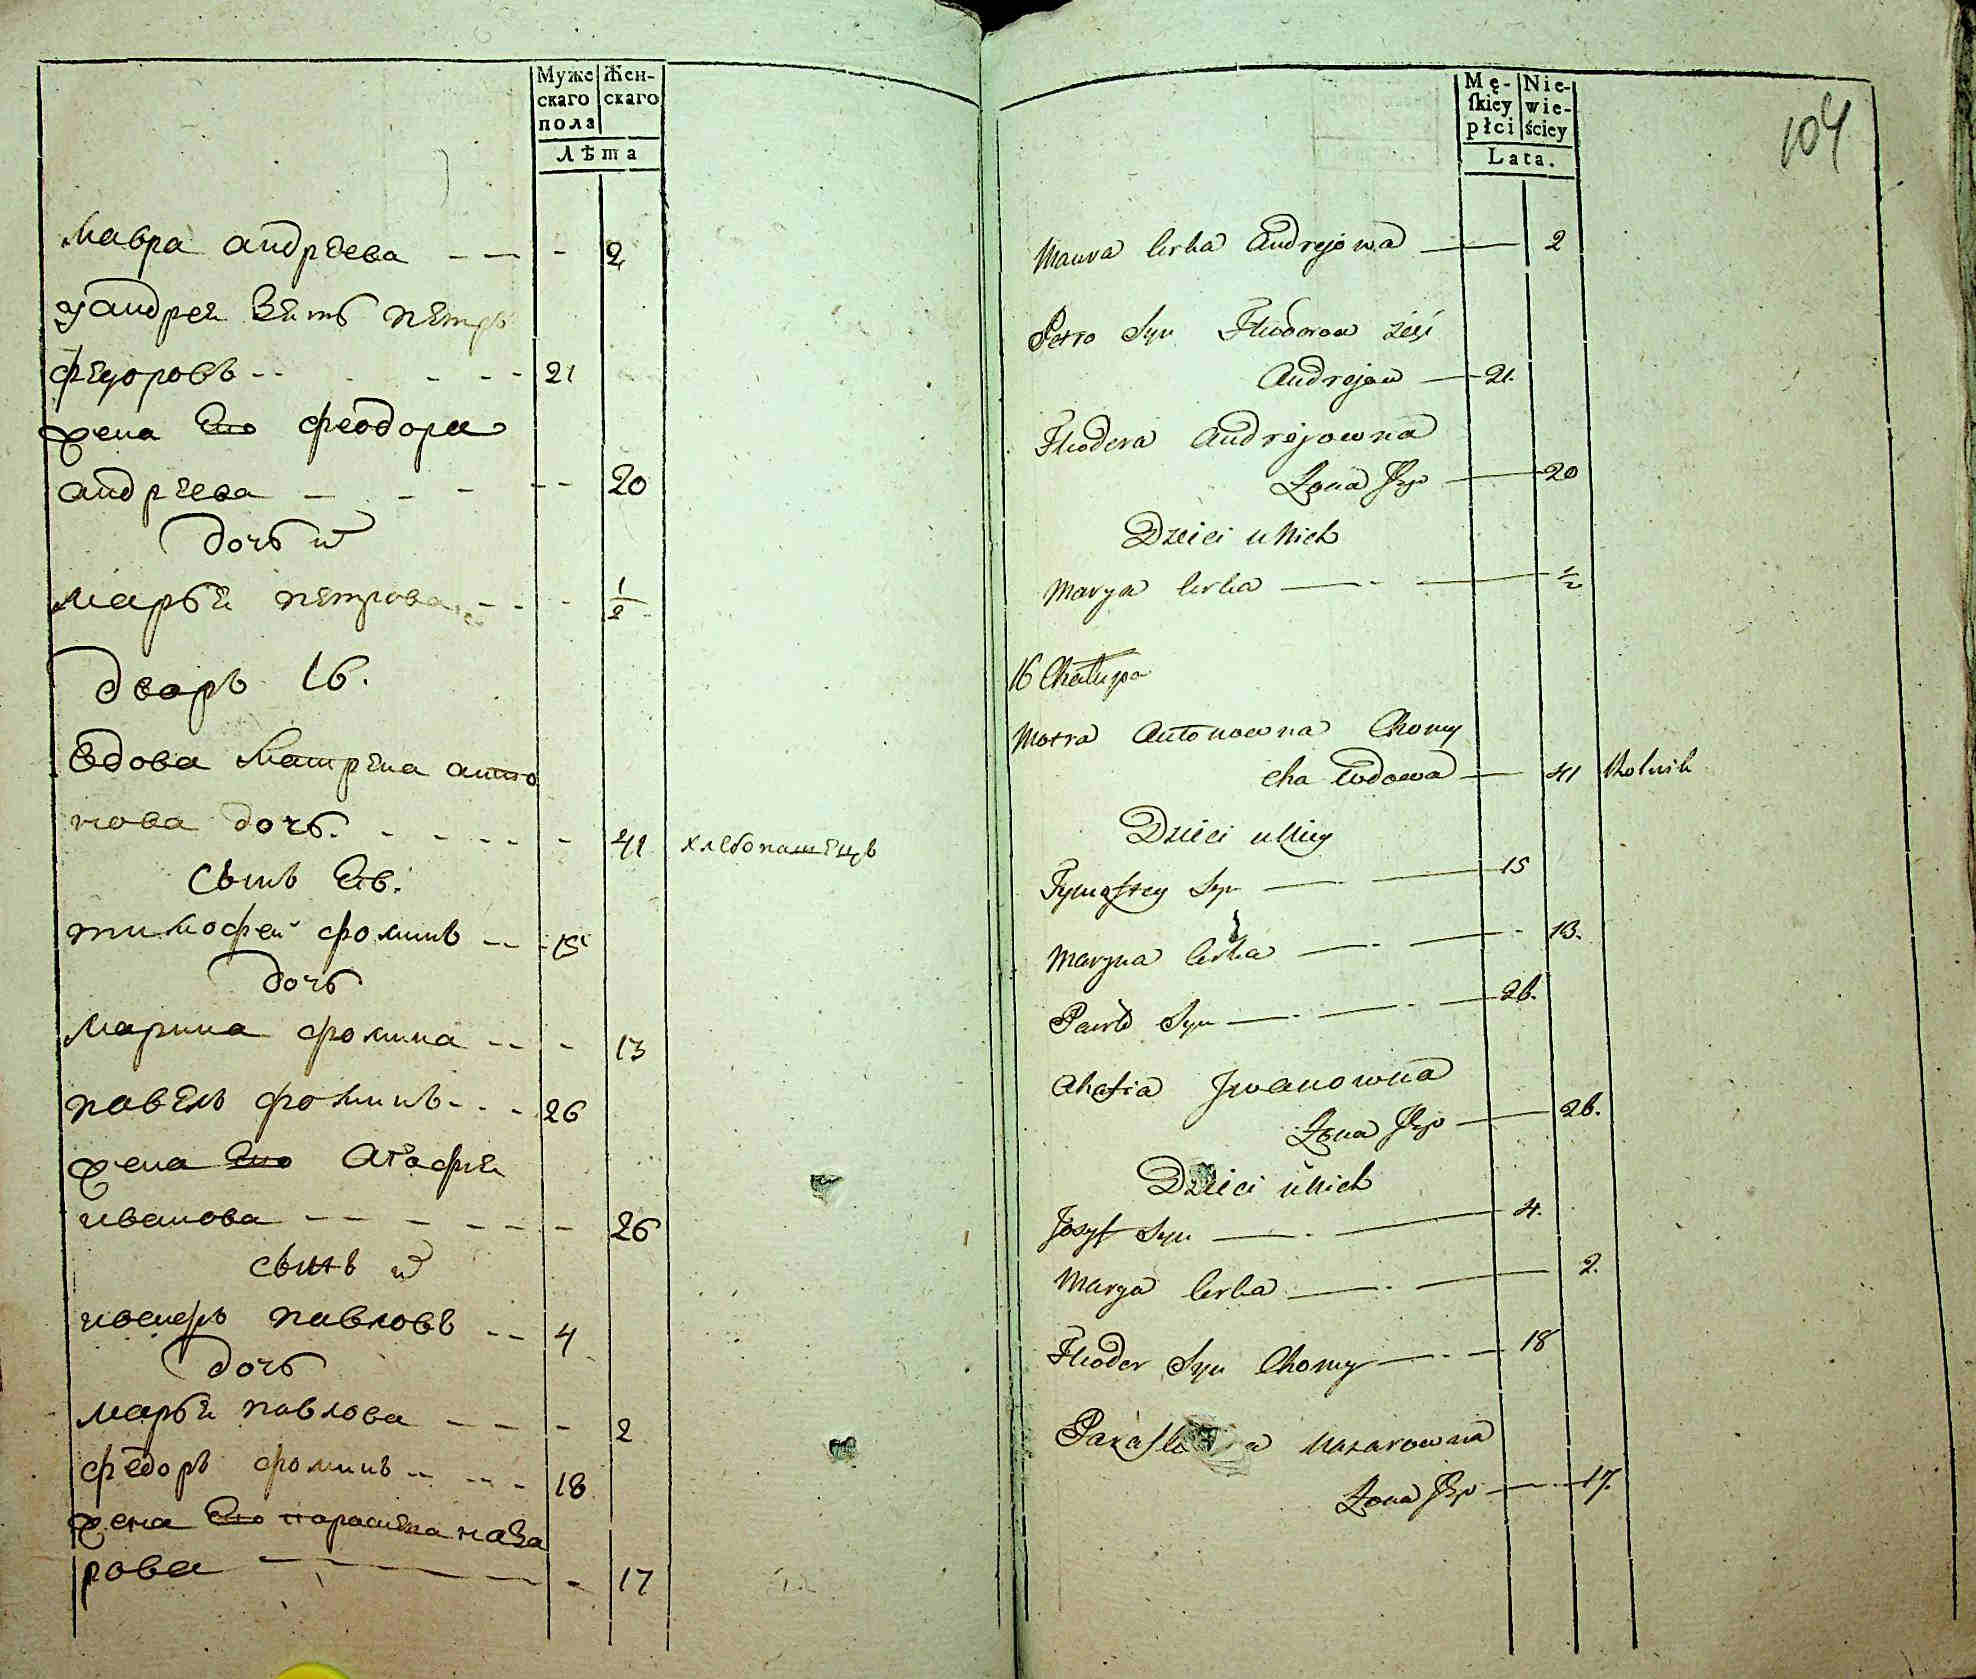 Муже
скаго
пола
Жен-
скаго
Лѣта
мавра андрѣева - - - - 2
у андрея зеть петръ
федоровъ - - - - - 21
жена его феодора
андрѣева - - - - - - 20
дочь их
марья петрова - - - 1/2
дворъ 16.
вдова матрена анто
нова дочь. - - - - - - 41 хлебопашецъ
сынъ ея.
тимофей фоминъ - - - 15
дочь
марина фомина - - - 13
павелъ фоминъ - - - 26
жена его агафия
иванова - - - - - - - 26
сынъ их
павловъ - - 4
дочь
марья павлова - - - - 2
федоръ фоминъ - - - - 18
жена его наза
рова - - - - - - 17
Mę-
ſkiey
płci
Nie-
wie-
ściey
Lata.
104
Mawra Corka Andrejowa — 2
Petro Syn Fhiodorow zięć
Andrejow — 21.
Fhiodora Andrejowna
Żona Jego — 20
Dzieci u Nich
Marya Corka — - — 1/2
16 Chałupa
Motra Antonowna Chomy
cha Wdowa — 41 Rolnik
Dzieci u Niey
Tymofiey Syn — - — 15
Maryna Corka — - — - 13.
Pawło Syn — - — - — 26.
Ahafia Jwanowna
Żona Jego — 26.
Dzieci u Nich
Jozyf Syn — - — 4.
Marya Corka — - — 2.
Fhiodor Syn Chomy — - - 18
Nazarowna
Żona Jego — - - 17.